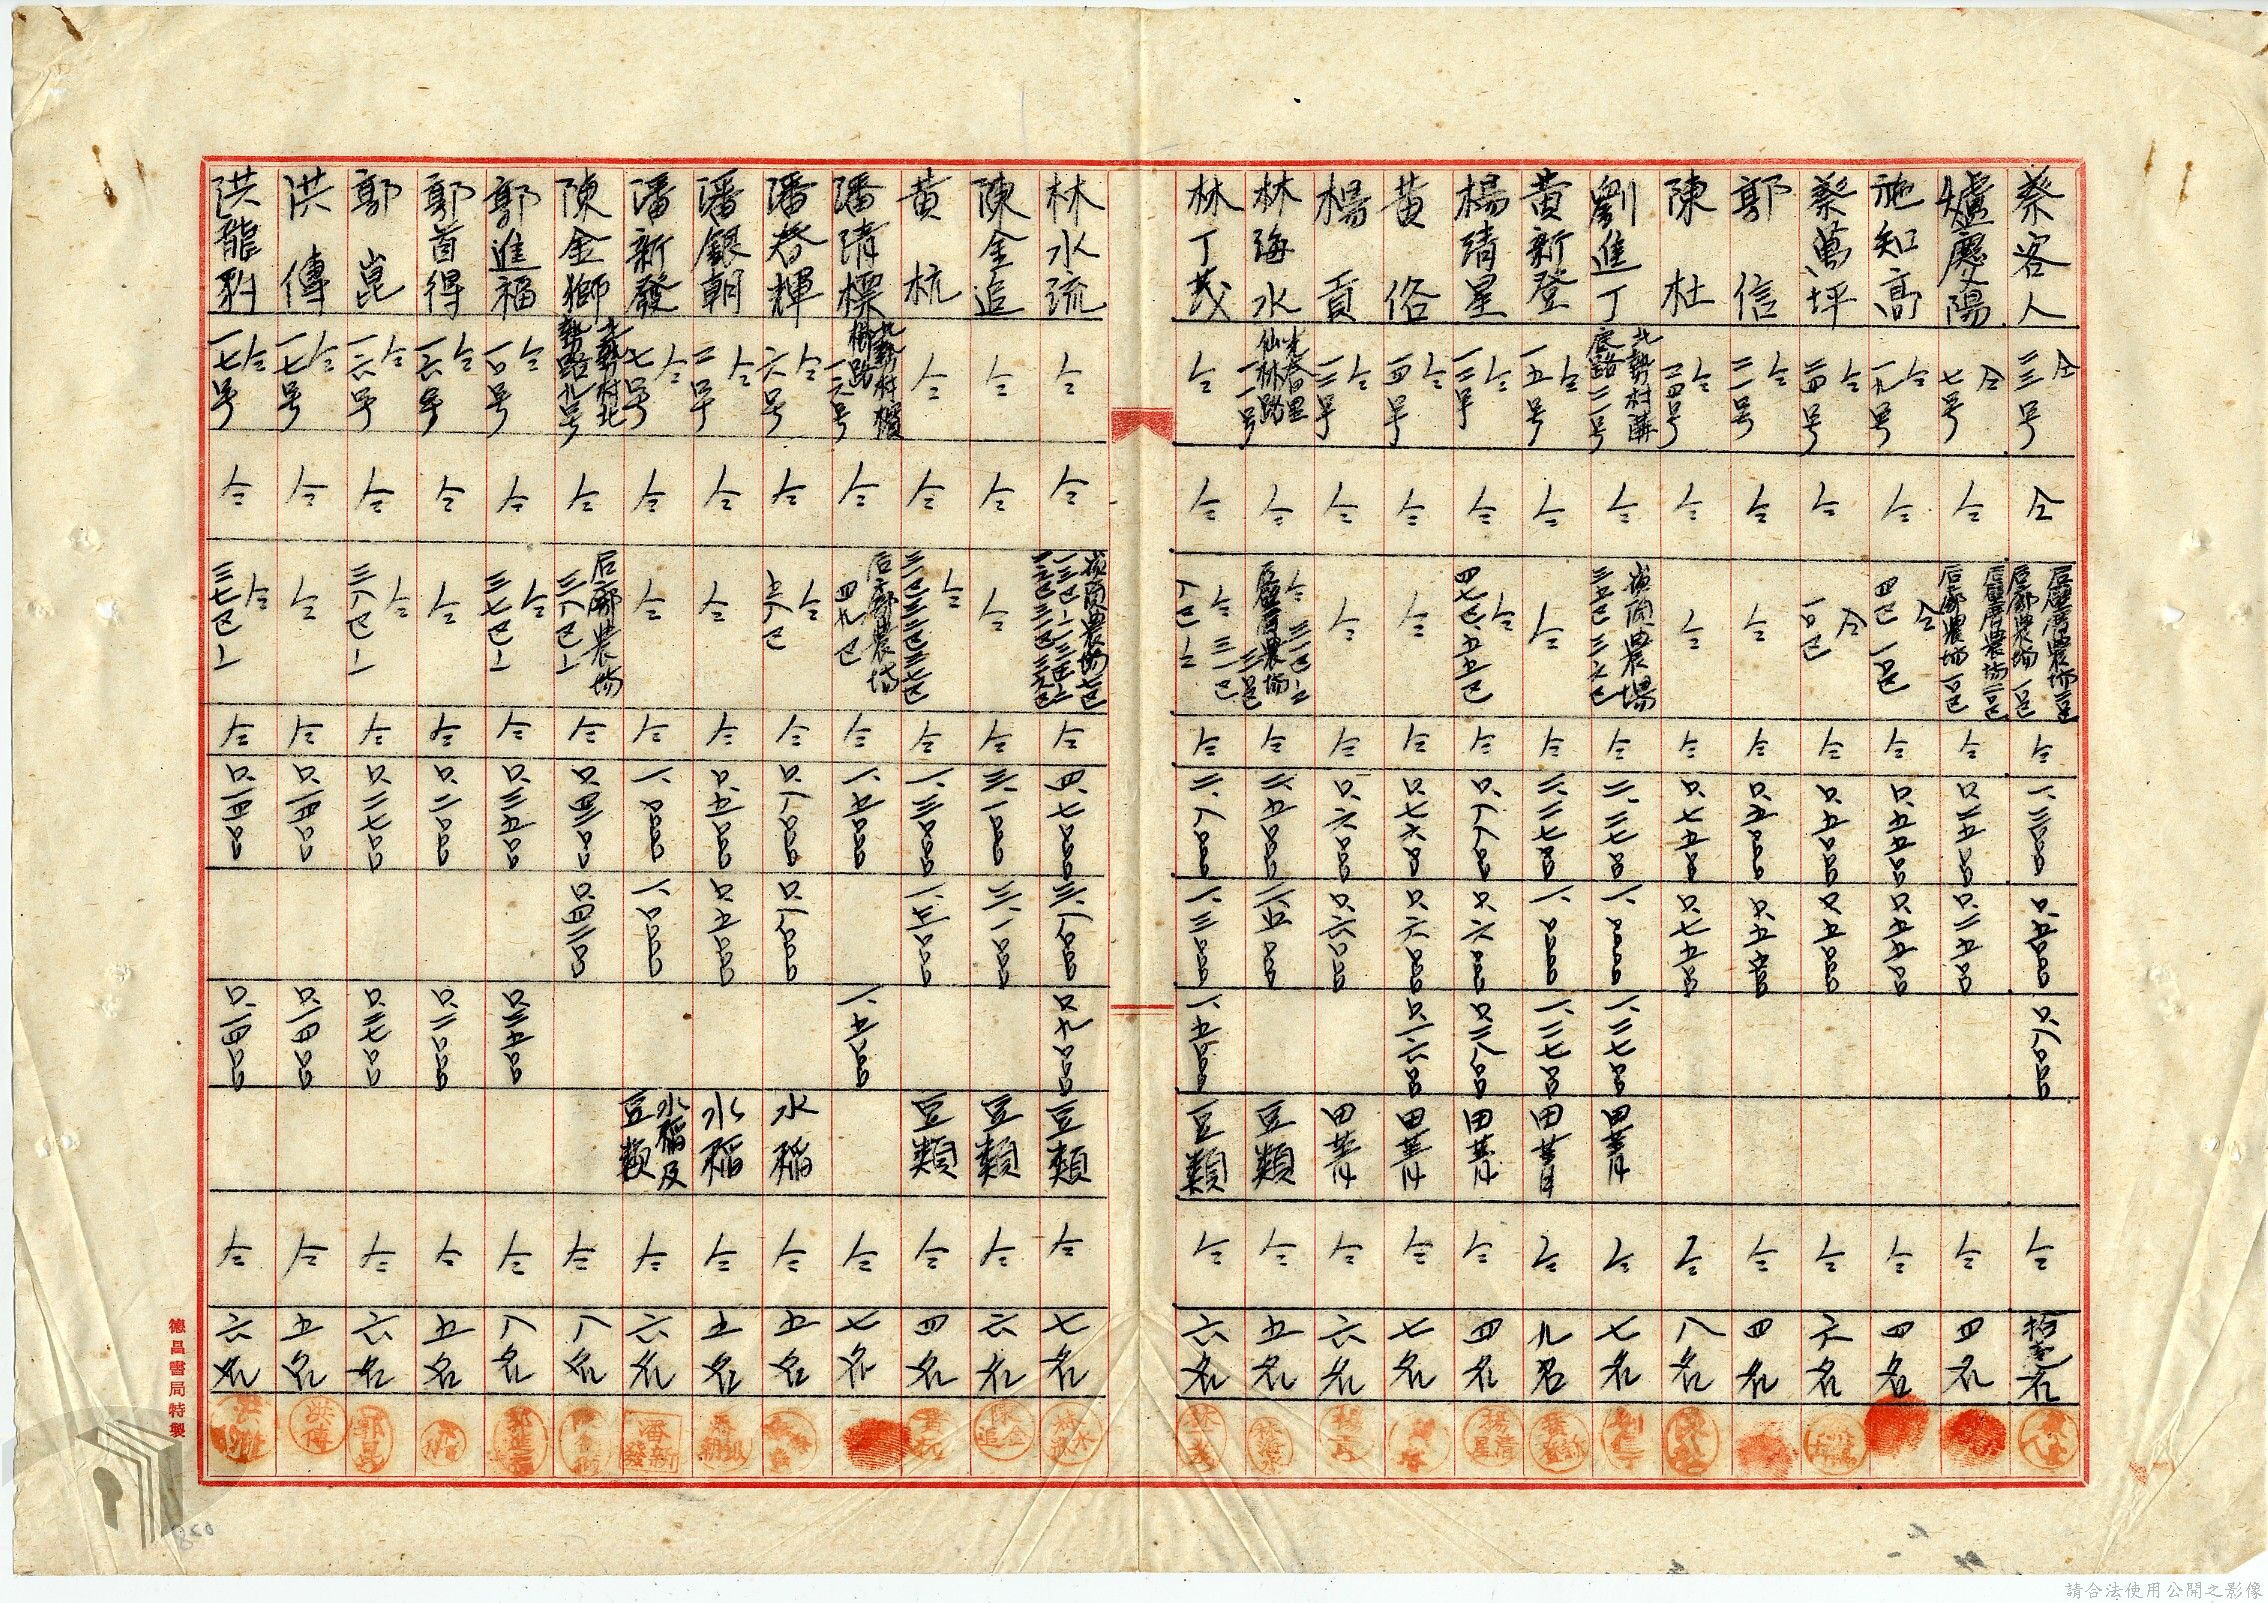 蔡客人 仝三三号 仝 仝 一、三〇〇〇 〇、五〇〇〇 〇、八〇〇〇 仝
爐慶陽 仝七号 仝 仝 〇、三五〇〇 〇、三五〇〇 仝 四名
施知高 仝一九号 仝 仝四已 仝 〇、五五〇〇 〇、五五〇〇 仝 四名
蔡萬坪 仝二四号 仝 仝一〇已 仝 〇、五〇〇〇 〇、五〇〇〇 仝 六名
郭信 仝二一号 仝 仝 仝 〇、五〇〇〇 〇、五〇〇〇 仝 四名
陳杜 仝二四号 仝 仝 仝 〇、七五〇〇 〇、七五〇〇 仝 八名
劉進丁 北勢村溝底路二一号 仝 農場三五已三六已 仝 二、二七〇〇 一、〇〇〇〇 一、二七〇〇 田菁 仝 七名
黃新登 仝一五号 仝 仝 仝 二、二七〇〇 一、〇〇〇〇 一、二七〇〇 田菁 仝 九名
楊清星 仝一二号 仝 仝四七已、五五已 仝 〇、八八〇〇 〇、六〇〇〇 〇、二八〇〇 田菁 仝 四名
黃俗 仝一四号 仝 仝 仝 〇、七六〇〇 〇、六〇〇〇 〇、一六〇〇 田菁 仝 七名
楊貢 仝一三号 仝 仝 仝 〇、六〇〇〇 〇、六〇〇〇 田菁 仝 六名
林海水 光春里仙林路一一号 仝 仝 二、五〇〇〇 二、五〇〇〇 豆類 仝 五名
林丁茂 仝 仝 仝三一已 仝 二、八〇〇〇 一、三〇〇〇 一、五〇〇〇 豆類 仝 六名
林水流 仝 仝 仝 四、七〇〇〇 三、八〇〇〇 〇、九〇〇〇 豆類 仝 七名
陳金追 仝 仝 仝 仝 三、一〇〇〇 三、一〇〇〇 豆類 仝 六名
黃杭 仝 仝 仝三一已三三已三七已 仝 一、三〇〇〇 一、五〇〇〇 豆類 仝 四名
潘清標 北勢村檳榔路一六号 仝 后廍農場四九已 仝 一、五〇〇〇 一、五〇〇〇 仝 七名
潘春輝 仝六号 仝 仝五八已 仝 〇、一八〇〇 〇、一八〇〇 水稻 仝 五名
潘銀朝 仝二号 仝 仝 仝 〇、五〇〇〇 〇、五〇〇〇 水稻 仝 五名
潘新發 仝七号 仝 仝 仝 一、〇〇〇〇 一、〇〇〇〇 水稻及豆類 仝 六名
陳金獅 北勢村北勢路九号 仝 后廍農場三八已 仝 〇、四二〇〇 〇、四二〇〇 仝 八名
郭進福 仝一〇号 仝 仝三七已 仝 〇、三五〇〇 〇、三五〇〇 仝 八名
郭首得 仝一六号 仝 仝 仝 〇、二〇〇〇 〇、二〇〇〇 仝 五名
郭崑 仝一六号 仝 仝三八已 仝 〇、二七〇〇 〇、二七〇〇 仝 六名
洪傳 仝一七号 仝 仝 仝 〇、一四〇〇 〇、一四〇〇 仝 五名
洪龍 仝一七号 仝 仝三七已 仝 〇、一四〇〇 〇、一四〇〇 仝 六名
德昌書局特製
請合法使用公開之影像